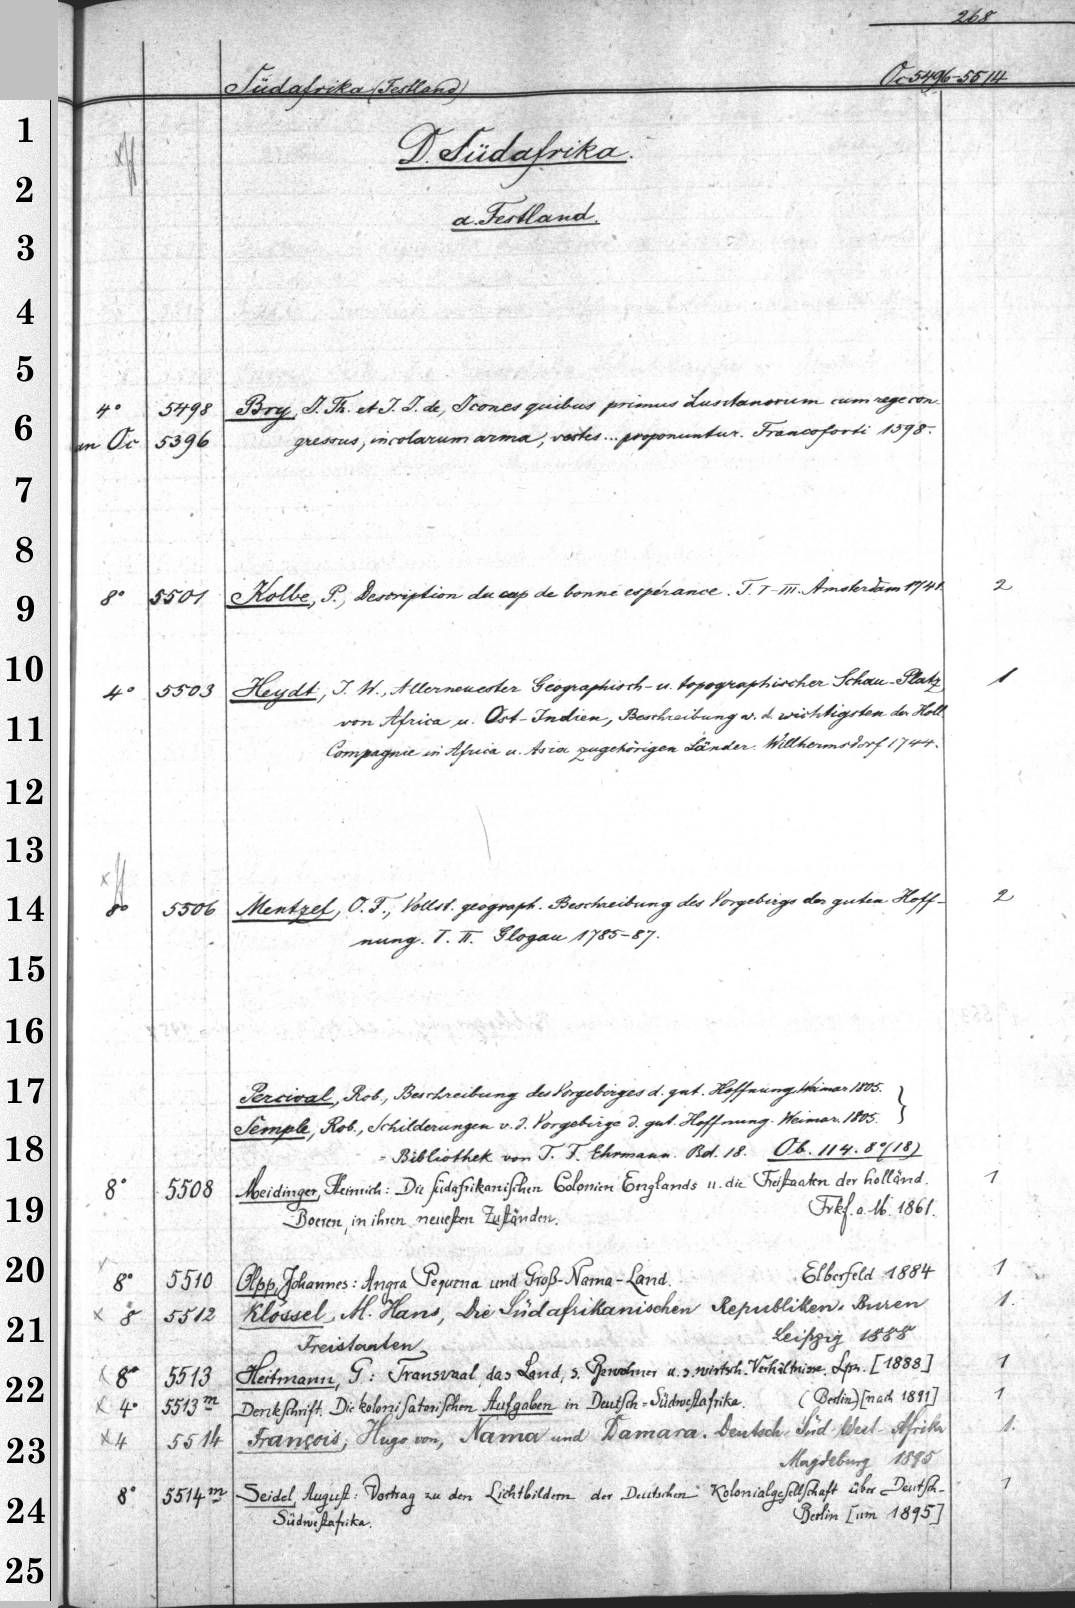 268
Südafrika (Festland) Oc 5496-5514
D. Südafrika.
a. Festland.
4° 5498 Bry, J. Th. et J. J. de, Icones quibus primus Lusitanorum cum rege con-
an Oc 5396 gressus, incolarum arma, vestes... proponuntur. Francoforti 1598.
8° 5501 Kolbe, P., Description du cap de bonne espérance. T. I-III. Amsterdam 1741. 2
4° 5503 Heydt, J. W., Allerneuester Geographisch- u. topographischer Schau-Platz 1
von Africa u. Ost-Indien, Beschreibung v. d. wichtigsten der Holl.
Compagnie in Africa u. Asia zugehörigen Länder. Willhermsdorf 1744.
8° 5506 Mentzel, O. F., Vollst. geograph. Beschreibung des Vorgebirgs der guten Hoff- 2
nung. T. II. Glogau 1785-87.
Percival, Rob., Beschreibung des Vorgebirges d. gut. Hoffnung. Weimar 1805. }
Semple, Rob., Schilderungen v. d. Vorgebirge d. gut. Hoffnung. Weimar 1805.
= Bibliothek von T. F. Ehrmann. Bd. 18. Ob. 114. 8° (18)
8° 5508 Meidinger, Heinrich: Die südafrikanischen Colonien Englands u. die Freistaaten der holländ. 1
Boeren, in ihren neuesten Zuständen. Frkf. a. M. 1861.
8° 5510 Olpp, Johannes: Angra Pequena und Groß-Nama-Land. Elberfeld 1884 1
x 8° 5512 Klössel, M. Hans, Die Südafrikanischen Republiken. Buren 1.
Freistaaten Leipzig 1888
x 8° 5513 Heitmann, G.: Transvaal, das Land, s. Bewohner u. s. wirtsch. Verhältnisse. Lpz. [1888] 1
x 4° 5513m Denkschrift. Die kolonisatorischen Aufgaben in Deutsch-Südwestafrika. (Berlin) [nach 1891] 1
x 4 5514 François, Hugo von, Nama und Damara. Deutsch Süd-West-Afrika 1.
Magdeburg 1895
8° 5514m Seidel, August: Vortrag zu den Lichtbildern der Deutschen Kolonialgesellschaft über Deutsch- 1
Südwestafrika. Berlin [um 1895]
1
2
3
4
5
6
7
8
9
10
11
12
13
14
15
16
17
18
19
20
21
22
23
24
25